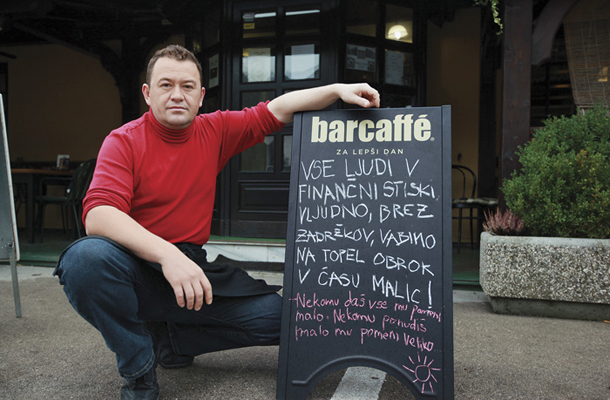 barcaffé®
ZA LEPŠI DAN
VSE LJUDI V
FINANČNI STISKI
VLJUDNO, BREZ
ZADRŽKOV, VABIMO
NA TOPEL OBROK
V ČASU MALIC!
Nekomu daš vse mu pomeni
malo. Nekomu ponudiš
malo mu pomeni veliko